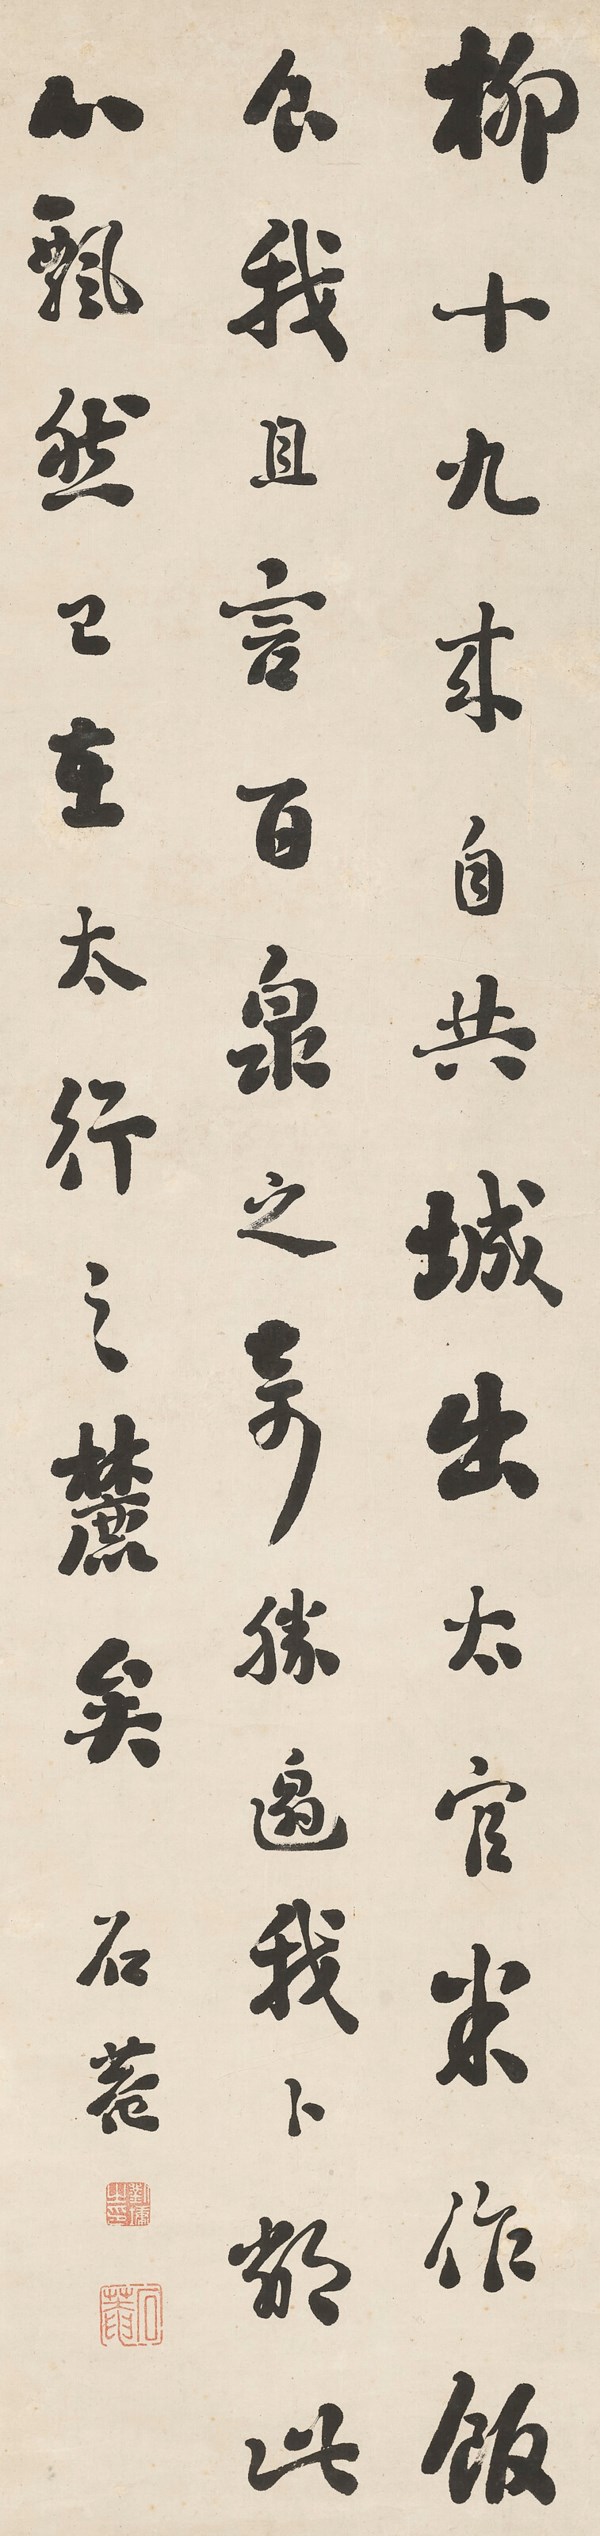 柳十九来自共城出太官米作飯
食我且言百泉之奇勝邀我卜鄰此
心飄然已在太行之麓矣
石菴
劉墉之印
石菴